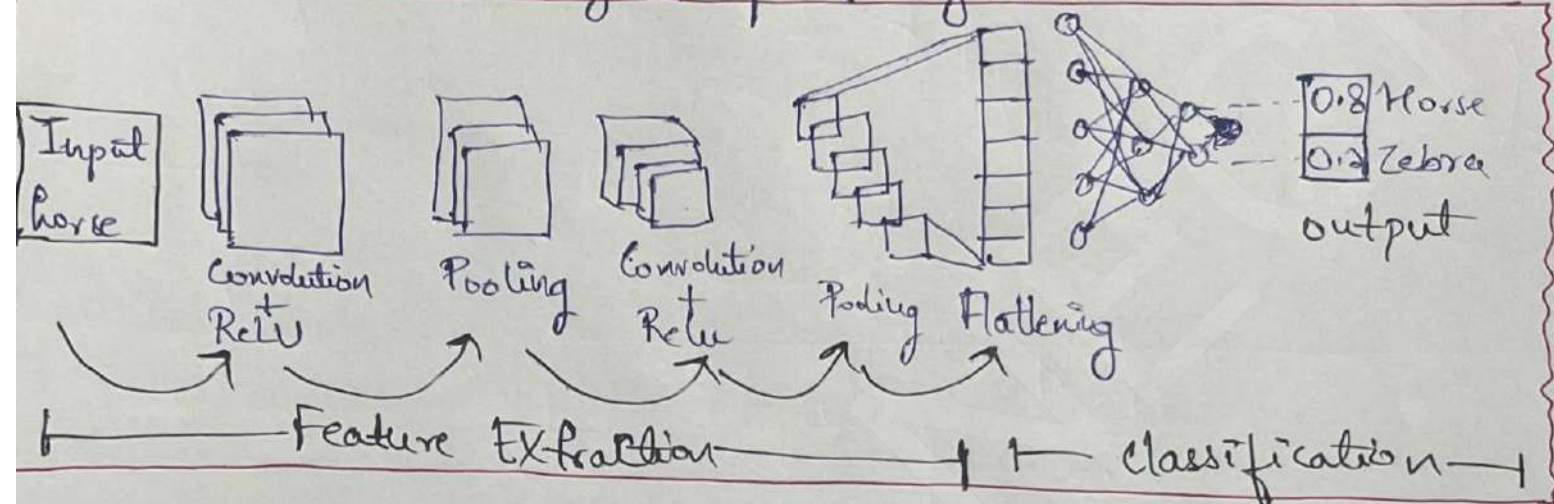 Input
horse
Convolution
+
ReLU
Pooling
Convolution
+
Relu
Pooling
Flattening
0.8 Horse
0.2 Zebra
output
Feature Extraction
classification